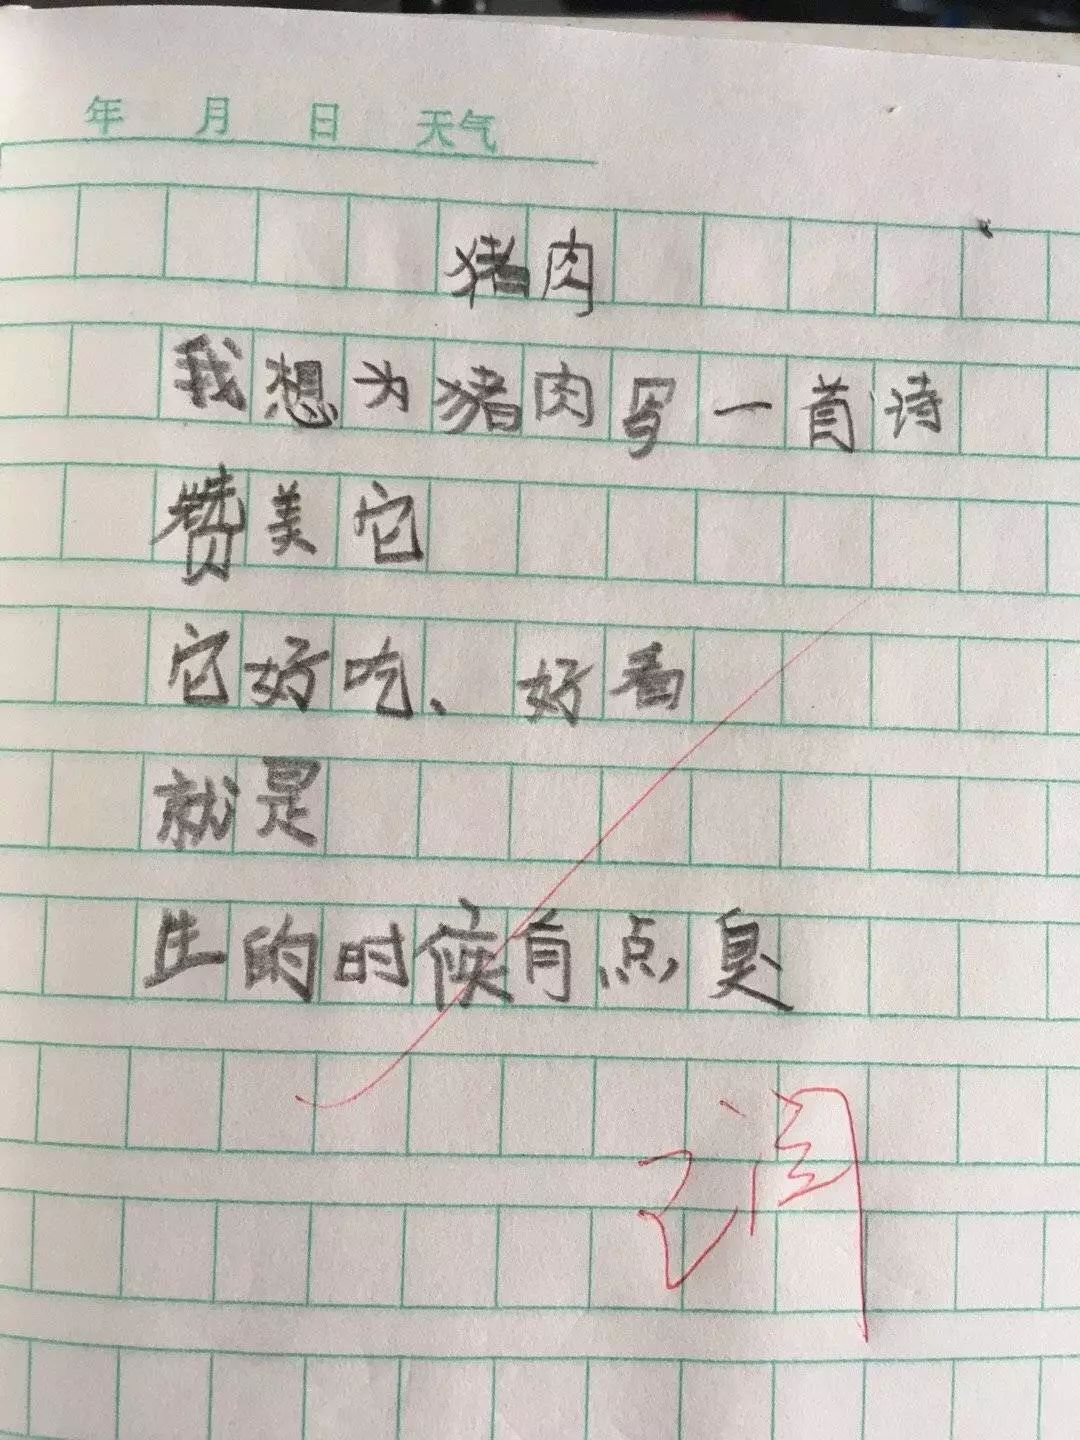 年 月 日 天气
猪肉
我想为猪肉写一首诗
赞美它
它好吃、好看
就是
生的时候有点臭
已阅